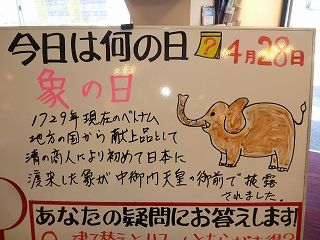 今日は何の日?
4月28日
象の日
1729年現在のベトナム
地方の国から献上品として
清の商人により初めて日本に
渡来した象が中御門天皇の御前で披露
されました。
あなたの疑問にお答えします!